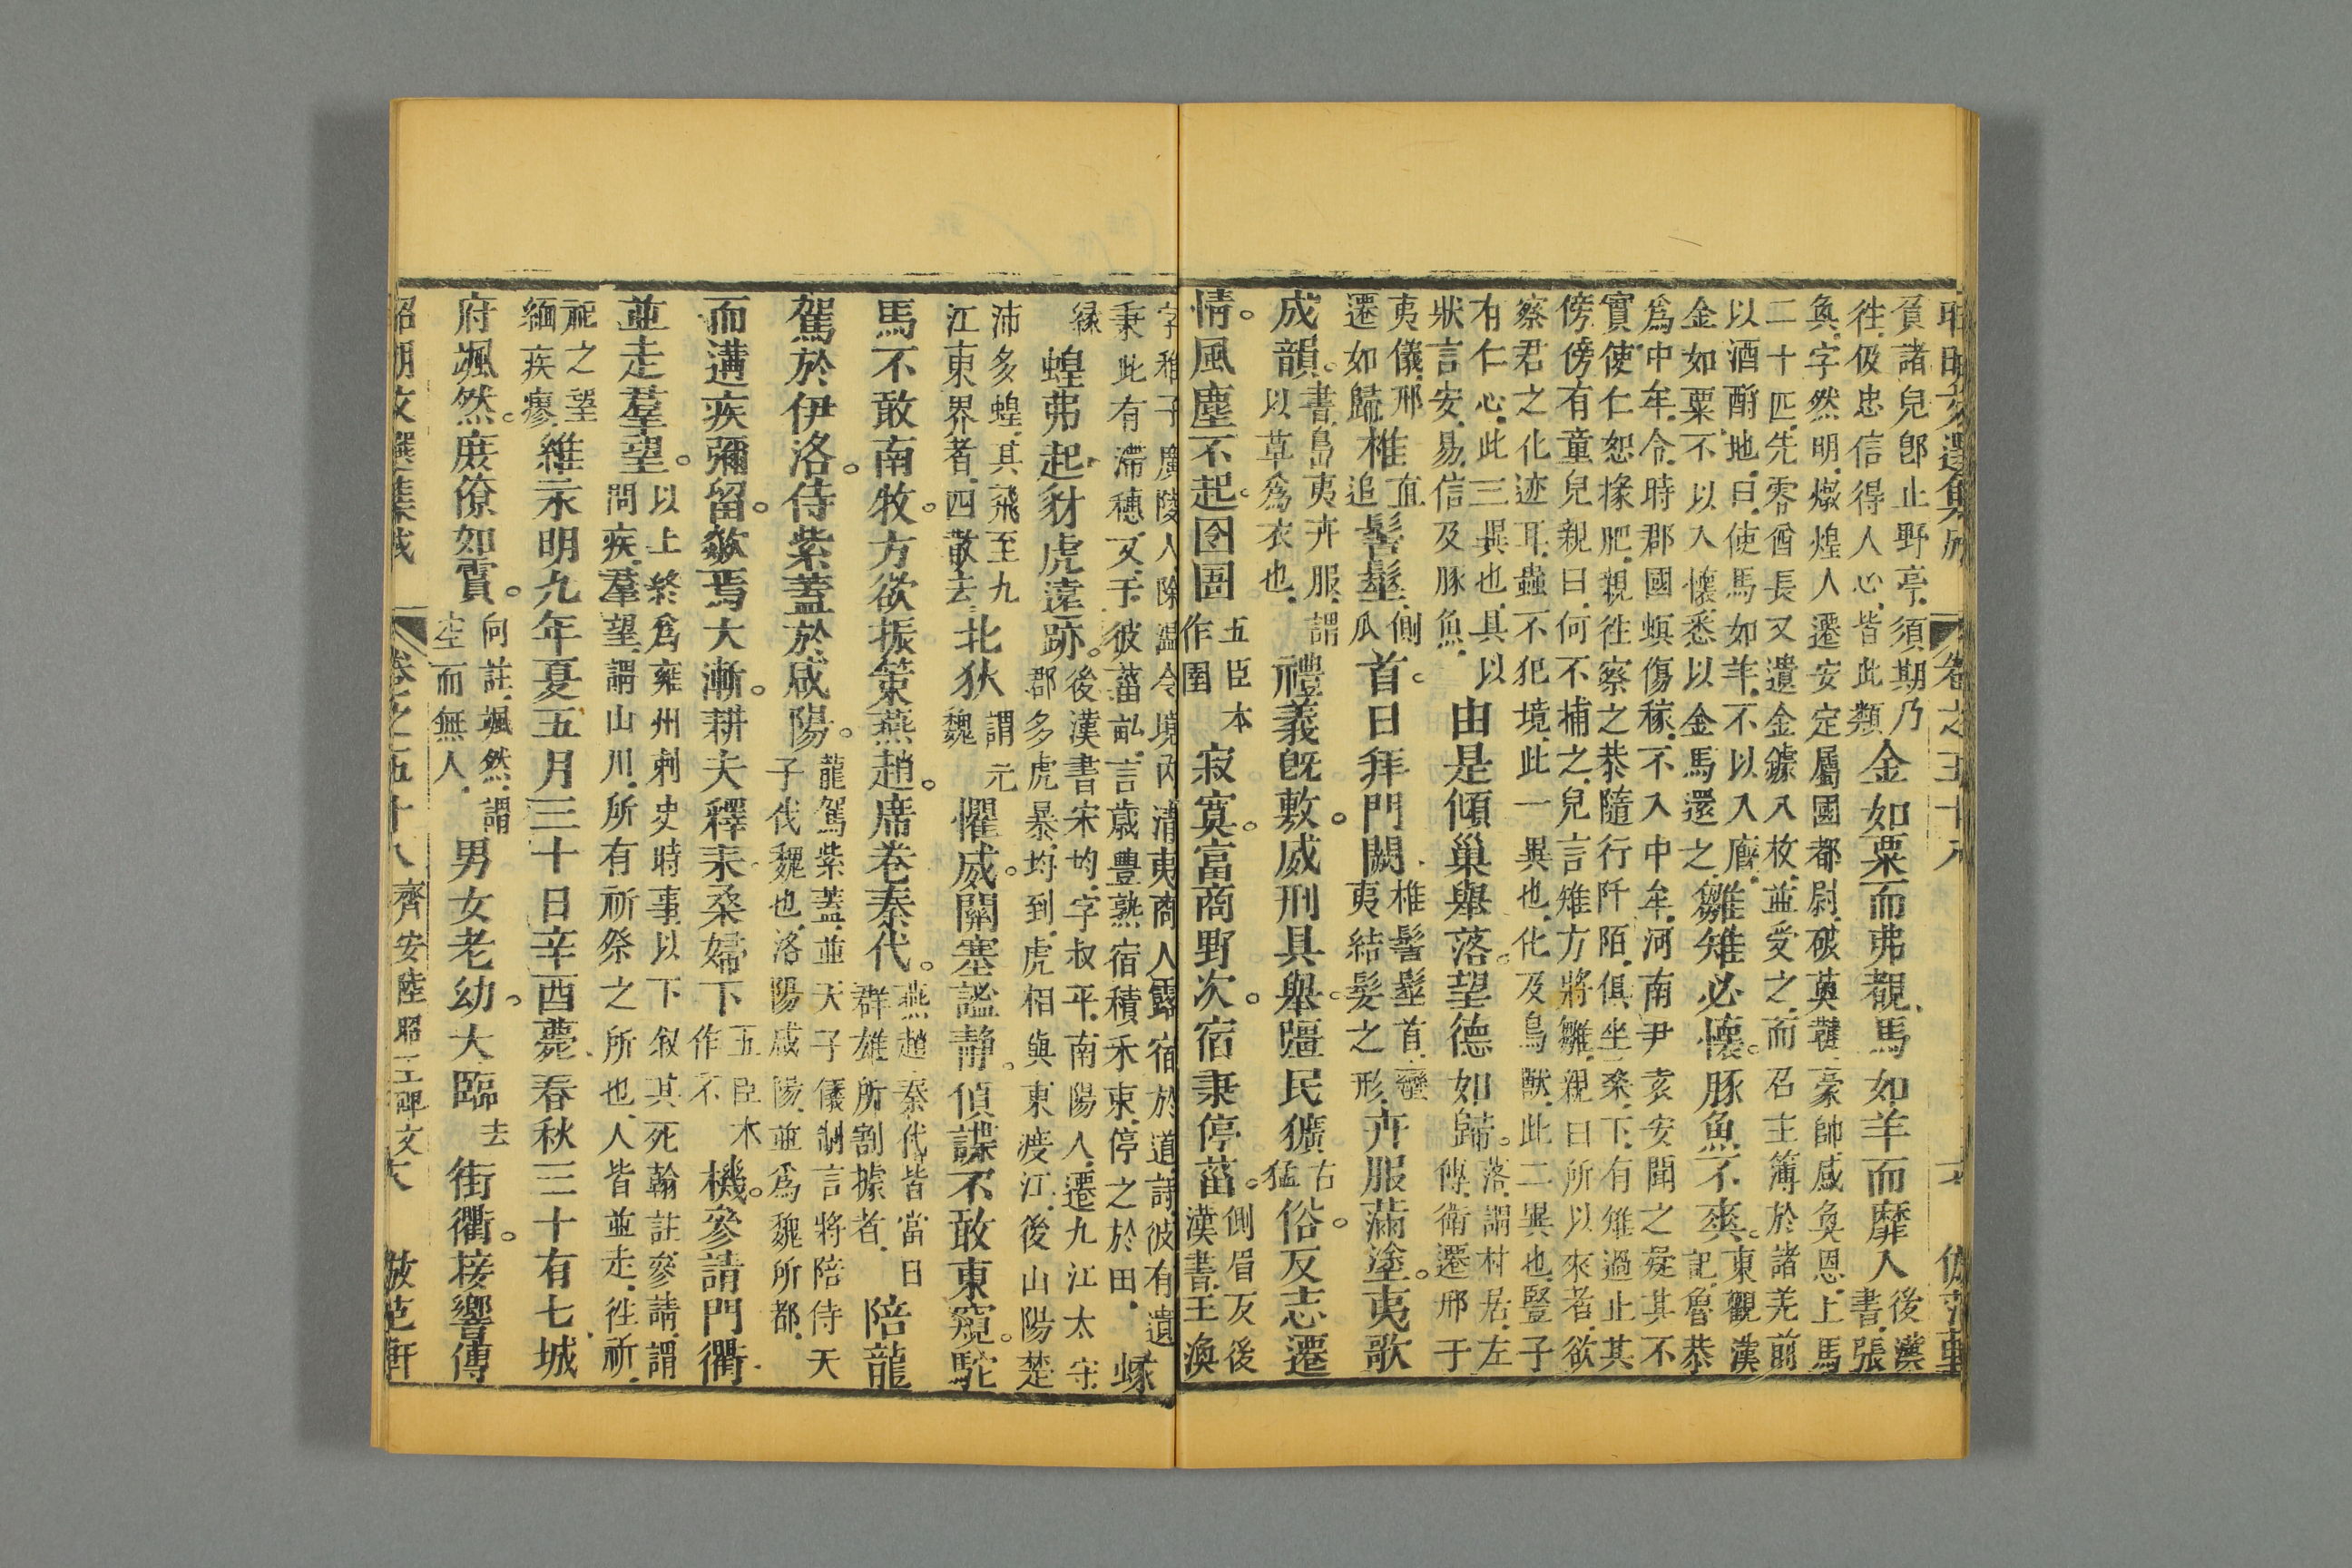 昭明文選集成 卷之五十八 倣范軒
貟諸兒即止野亭須期乃
往伋忠信得人心皆此類
金如粟而弗覩馬如羊而靡入
後漢
書張
奐字然明燉煌人遷安定屬國都尉破薁鞬豪帥感奐恩上馬
二十匹先零酋長又遺金鐻八枚並受之而召主簿於諸羌前
以酒酹地曰使馬如羊不以入廄
金如粟不以入懷悉以金馬還之
雛雉必懷。豚魚不爽。
東觀漢
記魯恭
為中牟令時郡國螟傷稼不入中牟河南尹袁安聞之疑其不
實使仁恕掾肥親往察之恭隨行阡陌俱坐桑下有雉過止其
傍傍有童兒親曰何不捕之兒言雉方將雛親曰所以來者欲
察君之化迹耳蟲不犯境此一異也化及鳥獸此二異也豎子
有仁心此三異也具以
狀言安易信及豚魚
由是傾巢舉落。望德如歸。
落謂村居左
傳衛遷邢于
夷儀邢
遷如歸
椎
直
追
髻髽
側
瓜
首。日拜門闕
椎髻髽首蠻
夷結髮之形
卉服滿塗。夷歌
成韻。
書島夷卉服謂
以草為衣也
禮義旣敷。威刑具舉。彊民獷
古
猛
俗。反志遷
情。風塵不起。囹圄
五臣本
作圉
寂寞。富商野次。宿秉停菑。
側眉反後
漢書王渙
字稚子廣陵人除溫令境內清夷商人露宿於道詩彼有遺
秉此有滯穗又于彼菑畝言歲豐熟宿積禾束停之於田
蝝
緣
蝗弗起豺虎遠跡。
後漢書宋均字叔平南陽人遷九江太守
郡多虎暴均到虎相與東渡江後山陽楚
沛多蝗其飛至九
江東界者四散去
北狄
謂元
魏
懼威。關塞謐靜。偵諜不敢東窺。駝
馬不敢南牧。方欲振策燕趙。席卷秦代。
燕趙秦代皆當日
群雄所割據者
陪龍
駕於伊洛。侍紫蓋於咸陽。
龍駕紫蓋並天子儀制言將陪侍天
子伐魏也洛陽咸陽並為魏所都
而遘疾彌留。欻焉大漸。耕夫釋耒桑婦下
五臣本
作不
機。參請門衢
並走羣望。
以上終為雍州刺史時事以下叙其死翰註參請謂
問疾羣望謂山川所有祈祭之所也人皆並走往祈
祝之望
緬疾瘳
維永明九年夏五月三十日辛酉薨春秋三十有七城
府颯然。庶僚如賫。
何註颯然謂
空而無人
男女老幼。大臨
去
街衢。接響傳
昭明文選集成 卷之五十八 齊安陸昭王碑文 倣范軒